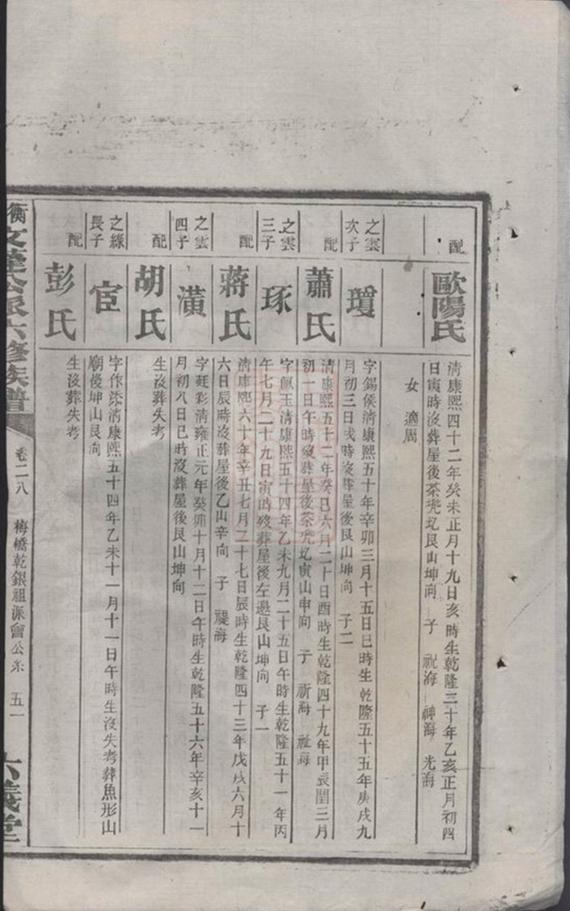 配
歐陽氏
清康熙四十二年癸未正月十九日亥時生乾隆三十年乙亥正月初四
日寅時沒葬屋後茶兜圫艮山坤向 子 祝海 神海 光海
女 適周
之雲次子
瓊
字錫侯清康熙五十年辛卯三月十五日巳時生乾隆五十五年庚戌九
月初三日戌時沒葬屋後艮山坤向 子二
配
蕭氏
清康熙五十二年癸巳六月二十日酉時生乾隆四十九年甲辰閏三月
初一日午時歿葬屋後茶兜圫寅山申向 子 新海 祉海
之雲三子
琢
字佩玉清康熙五十四年乙未九月二十五日午時生乾隆五十一年丙
午七月二十九日寅時歿葬屋後左邊艮山坤向 子一
配
蔣氏
清康熙六十年辛丑七月二十七日辰時生乾隆四十三年戊戌六月十
六日辰時沒葬屋後乙山辛向 子 禔海
之雲四子
潢
字廷彩清雍正元年癸卯十月十二日午時生乾隆五十六年辛亥十一
月初八日巳時沒葬屋後艮山坤向
配
胡氏
生沒葬失考
之綠長子
宦
字作霖清康熙五十四年乙未十一月十一日午時生沒失考葬魚形山
廟後坤山艮向
配
彭氏
生沒葬失考
衡文達公派六修族譜
卷二八
梅橋乾銀祖派會公系
五一
六義堂